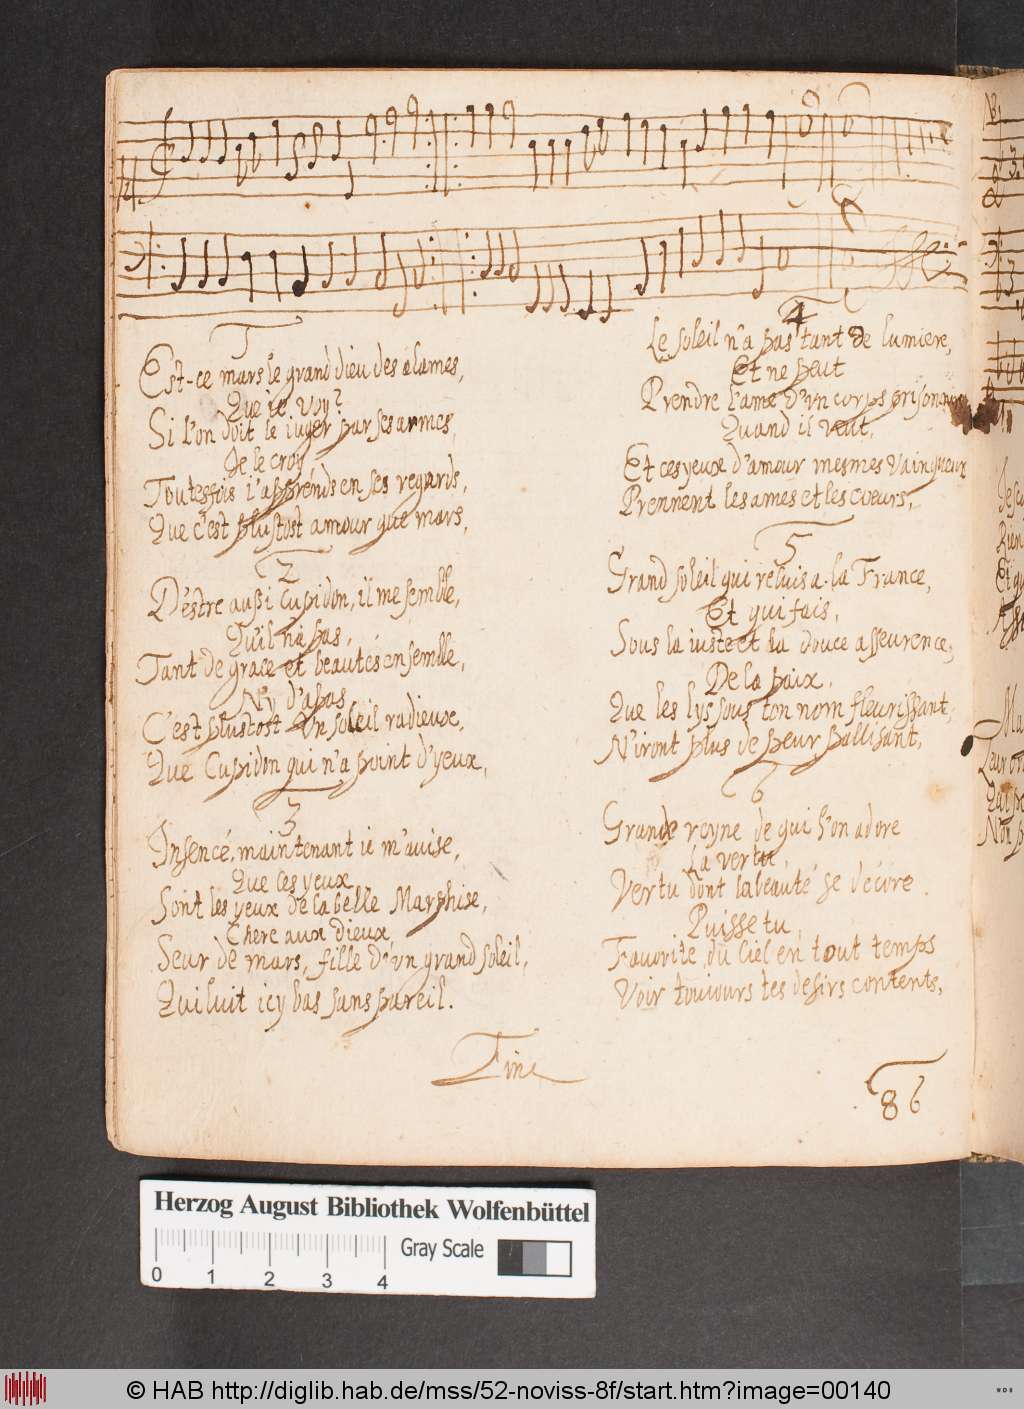 1
Est-ce mars le grand dieu des alarmes,
Que ie voy?
Si l'on doit le iuger par ses armes,
Je le croy
Toutesfois i'apprends en ses regards,
Que c'est plustost amour que mars,
2
D'estre aussi Cupidon, il me semble,
Qu'il n'a pas,
Tant de grace et beautés ensemble,
Ny d'apas
C'est plustost vn soleil radieux,
Que Cupidon qui n'a point d'yeux,
3
Insencé, maintenant ie m'auise,
Que ces yeux
Sont les yeux de la belle Marphise,
Chere aux dieux,
Seur de mars, fille d'vn grand soleil,
Qui luit icy bas sans pareil.
4
Le soleil n'a pas tant de lumiere,
Et ne peut
Prendre l'ame d'vn corps prisonniere
Quand il veut,
Et ces yeux d'amour mesmes vainqueux
Prennent les ames et les coeurs,
5
Grand soleil qui reluis a la France,
Et qui fais,
Sous la iuste et la douce asseurence,
De la paix,
Que les lys sous ton nom fleurissant,
N'iront plus de peur pallisant,
6
Grande royne de qui l'on adore
La vertu,
Vertu dont la beauté se décore.
Puisse tu,
Fauorite du Ciel en tout temps
Voir tousiours tes desirs contents,
Fine
86
Herzog August Bibliothek Wolfenbüttel
Gray Scale
0 1 2 3 4
© HAB http://diglib.hab.de/mss/52-noviss-8f/start.htm?image=00140